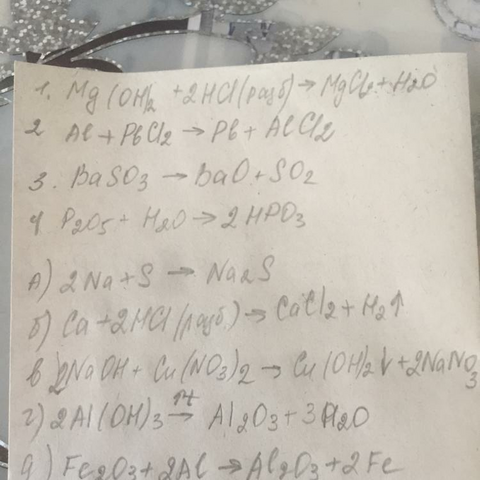 1. Mg(OH)2 + 2HCl (разб) → MgCl2 + H2O
2 Al + PbCl2 → Pb + AlCl2
3. BaSO3 → BaO + SO2
4 P2O5 + H2O → 2HPO3
А) 2Na + S → Na2S
б) Ca + 2HCl (разб.) → CaCl2 + H2↑
в 2NaOH + Cu(NO3)2 → Cu(OH)2↓ + 2NaNO3
г) 2Al(OH)3 → Al2O3 + 3H2O
д) Fe2O3 + 2Al → Al2O3 + 2Fe